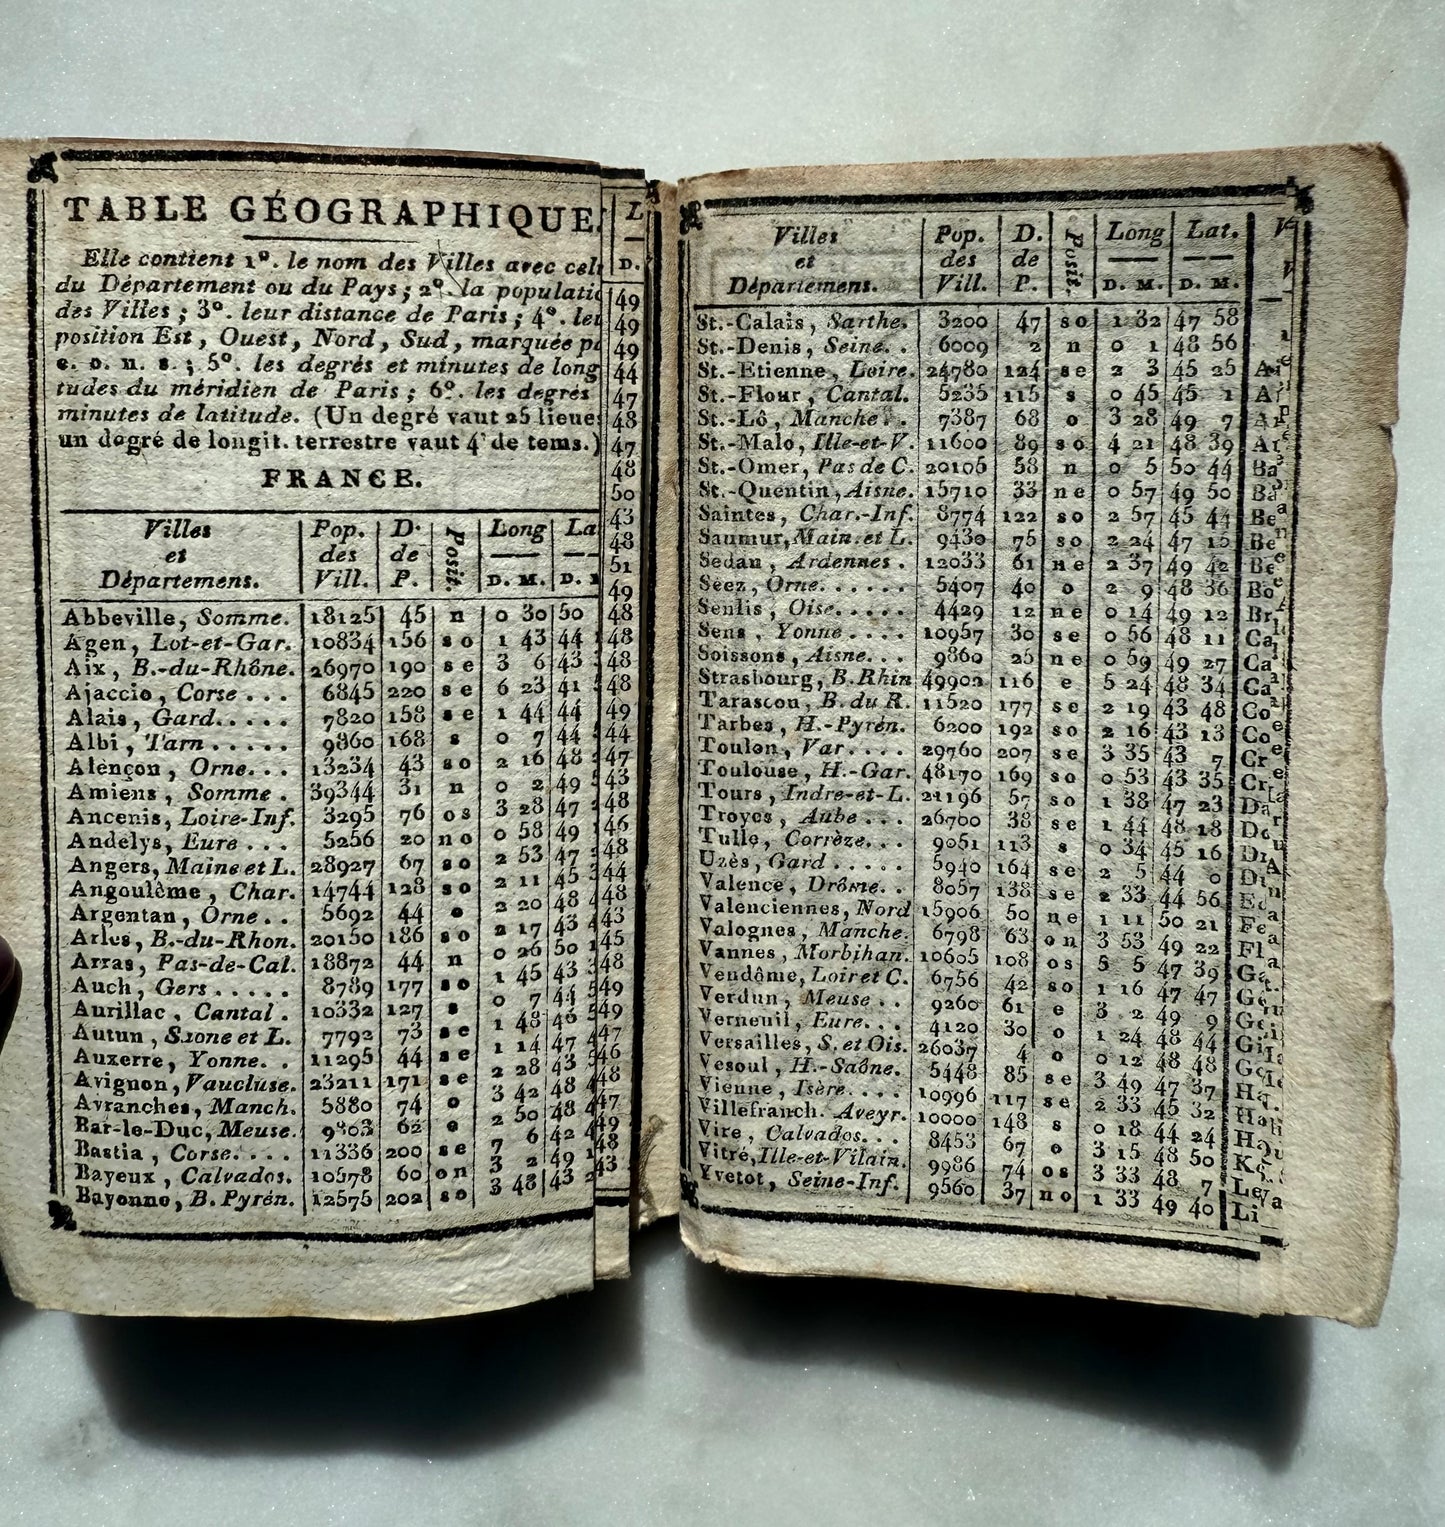 TABLE GÉOGRAPHIQUE.
Elle contient 1°. le nom des Villes avec cel
du Département ou du Pays; 2°. la populatio
des Villes; 3°. leur distance de Paris; 4°. leu
position Est, Ouest, Nord, Sud, marquée p
e. o. n. s.; 5°. les degrés et minutes de long
tudes du méridien de Paris; 6°. les degrés
minutes de latitude. (Un degré vaut 25 lieues
un degré de longit. terrestre vaut 4' de tems.)
FRANCE.
Villes et Départemens. Pop. des Vill. D. de P. Posit. Long D. M. La D.
Abbeville, Somme. 18125 45 n 0 30 50
Agen, Lot-et-Gar. 10834 156 so 1 43 44
Aix, B.-du-Rhône. 26970 190 se 3 6 43
Ajaccio, Corse ... 6845 220 se 6 23 41
Alais, Gard..... 7820 158 se 1 44 44
Albi, Tarn ..... 9860 168 s 0 7 44
Alençon, Orne... 13234 43 so 2 16 48
Amiens, Somme. 39344 31 n 0 2 49
Ancenis, Loire-Inf. 3295 76 os 3 28 47
Andelys, Eure ... 5256 20 no 0 58 49
Angers, Maine et L. 28927 67 so 2 53 47
Angoulême, Char. 14744 128 so 2 11 45
Argentan, Orne.. 5692 44 o 2 20 48
Arles, B.-du-Rhon. 20150 186 so 2 17 43
Arras, Pas-de-Cal. 18872 44 n 0 26 50
Auch, Gers ..... 8789 177 so 1 45 43
Aurillac, Cantal. 10332 127 s 0 7 44
Autun, Saone et L. 7792 73 se 1 48 46
Auxerre, Yonne.. 11295 44 se 1 14 47
Avignon, Vaucluse. 23211 171 se 2 28 43
Avranches, Manch. 5880 74 o 3 42 48
Bar-le-Duc, Meuse. 9803 62 e 2 50 48
Bastia, Corse.... 11336 200 se 7 6 42
Bayeux, Calvados. 10578 60 on 3 2 49
Bayonne, B. Pyrén. 12575 202 so 3 48 43
Villes et Départemens. Pop. des Vill. D. de P. Posit. Long D. M. Lat. D. M.
St.-Calais, Sarthe. 3200 47 so 1 32 47 58
St.-Denis, Seine.. 6009 2 n 0 1 48 56
St.-Etienne, Loire. 24780 124 se 2 3 45 25
St.-Flour, Cantal. 5235 115 s 0 45 45 1
St.-Lô, Manche. 7387 68 o 3 28 49 7
St.-Malo, Ille-et-V. 11600 89 so 4 21 48 39
St.-Omer, Pas de C. 20105 58 n 0 5 50 44
St.-Quentin, Aisne. 15710 33 ne 0 57 49 50
Saintes, Char.-Inf. 8774 122 so 2 57 45 44
Saumur, Main. et L. 9430 75 so 2 24 47 15
Sedan, Ardennes. 12033 61 ne 2 37 49 42
Séez, Orne...... 5407 40 o 2 9 48 36
Senlis, Oise..... 4429 12 ne 0 14 49 12
Sens, Yonne.... 10957 30 se 0 56 48 11
Soissons, Aisne... 9860 25 ne 0 59 49 27
Strasbourg, B. Rhin 49902 116 e 5 24 48 34
Tarascon, B. du R. 11520 177 se 2 19 43 48
Tarbes, H.-Pyrén. 6200 192 so 2 16 43 13
Toulon, Var.... 29760 207 se 3 35 43 7
Toulouse, H.-Gar. 48170 169 so 0 53 43 35
Tours, Indre-et-L. 21196 57 so 1 38 47 23
Troyes, Aube... 26760 38 se 1 44 48 18
Tulle, Corrèze... 9051 113 s 0 34 45 16
Uzès, Gard ..... 5940 164 se 2 5 44 0
Valence, Drôme.. 8057 138 se 2 33 44 56
Valenciennes, Nord 15906 50 ne 1 11 50 21
Valognes, Manche. 6798 63 on 3 53 49 22
Vannes, Morbihan. 10605 108 os 5 5 47 39
Vendôme, Loir et C. 6756 42 so 1 16 47 47
Verdun, Meuse.. 9260 61 e 3 2 49 9
Verneuil, Eure... 4120 30 o 1 24 48 44
Versailles, S. et Ois. 26037 4 o 0 12 48 48
Vesoul, H.-Saône. 5448 85 se 3 49 47 37
Vienne, Isère.... 10996 117 se 2 33 45 32
Villefranch. Aveyr. 10000 148 s 0 18 44 24
Vire, Calvados... 8453 67 o 3 15 48 50
Vitré, Ille-et-Vilain. 9986 74 os 3 33 48 7
Yvetot, Seine-Inf. 9560 37 no 1 33 49 40